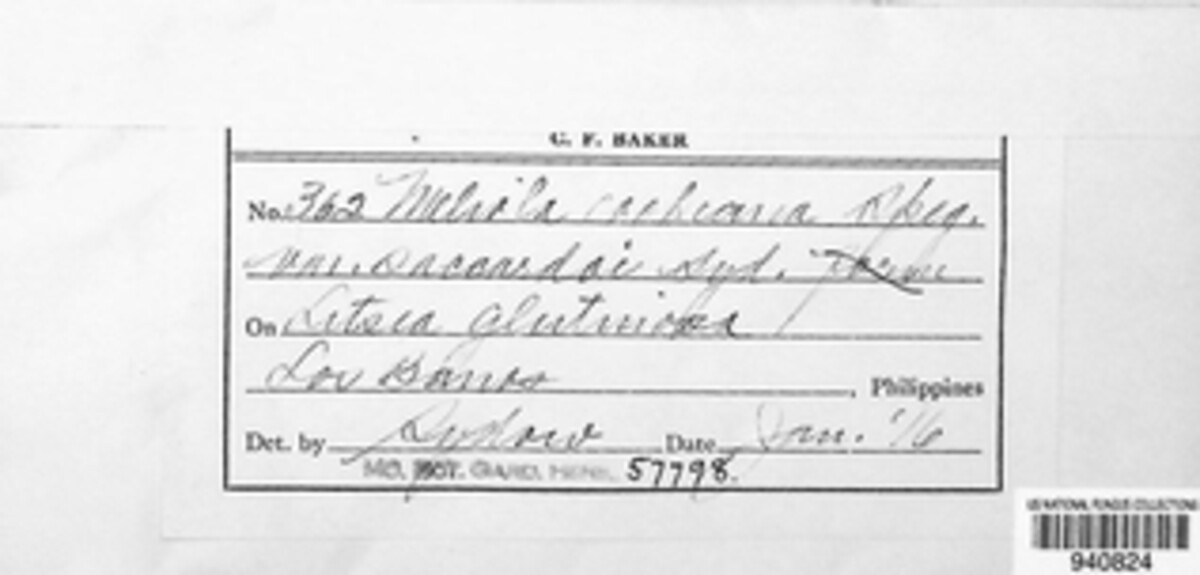 C. F. BAKER
No. 362 Meliola cookeana Speg.
var. saccardoi Syd.
On Litsea glutinosa
Los Banos, Philippines
Det. by Sydow Date Jan. '16
MO. BOT. GARD. HERB. 57798.
US NATIONAL FUNGUS COLLECTIONS
940824